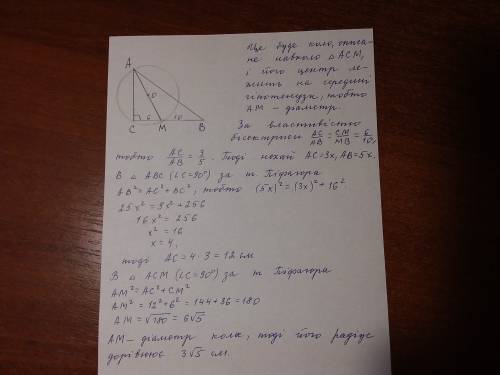 Це буде коло, описа-
не навколо △ ACM,
і його центр ле-
жить на середині
гіпотенузи, тобто
AM - діаметр.
A
C 6 M 10 B
За властивістю
бісектриси AC/AB = CM/MB = 6/10,
тобто AC/AB = 3/5. Тоді нехай AC=3x, AB=5x.
В △ ABC (∠C=90°) за т. Піфагора
AB²=AC²+BC², тобто (5x)²=(3x)²+16².
25x²=9x²+256
16x²=256
x²=16
x=4,
тоді AC=4·3=12 см
В △ ACM (∠C=90°) за т Піфагора
AM²=AC²+CM²
AM²=12²+6²=144+36=180
AM=√180=6√5
AM - діаметр кола, тоді його радіус
дорівнює 3√5 см.